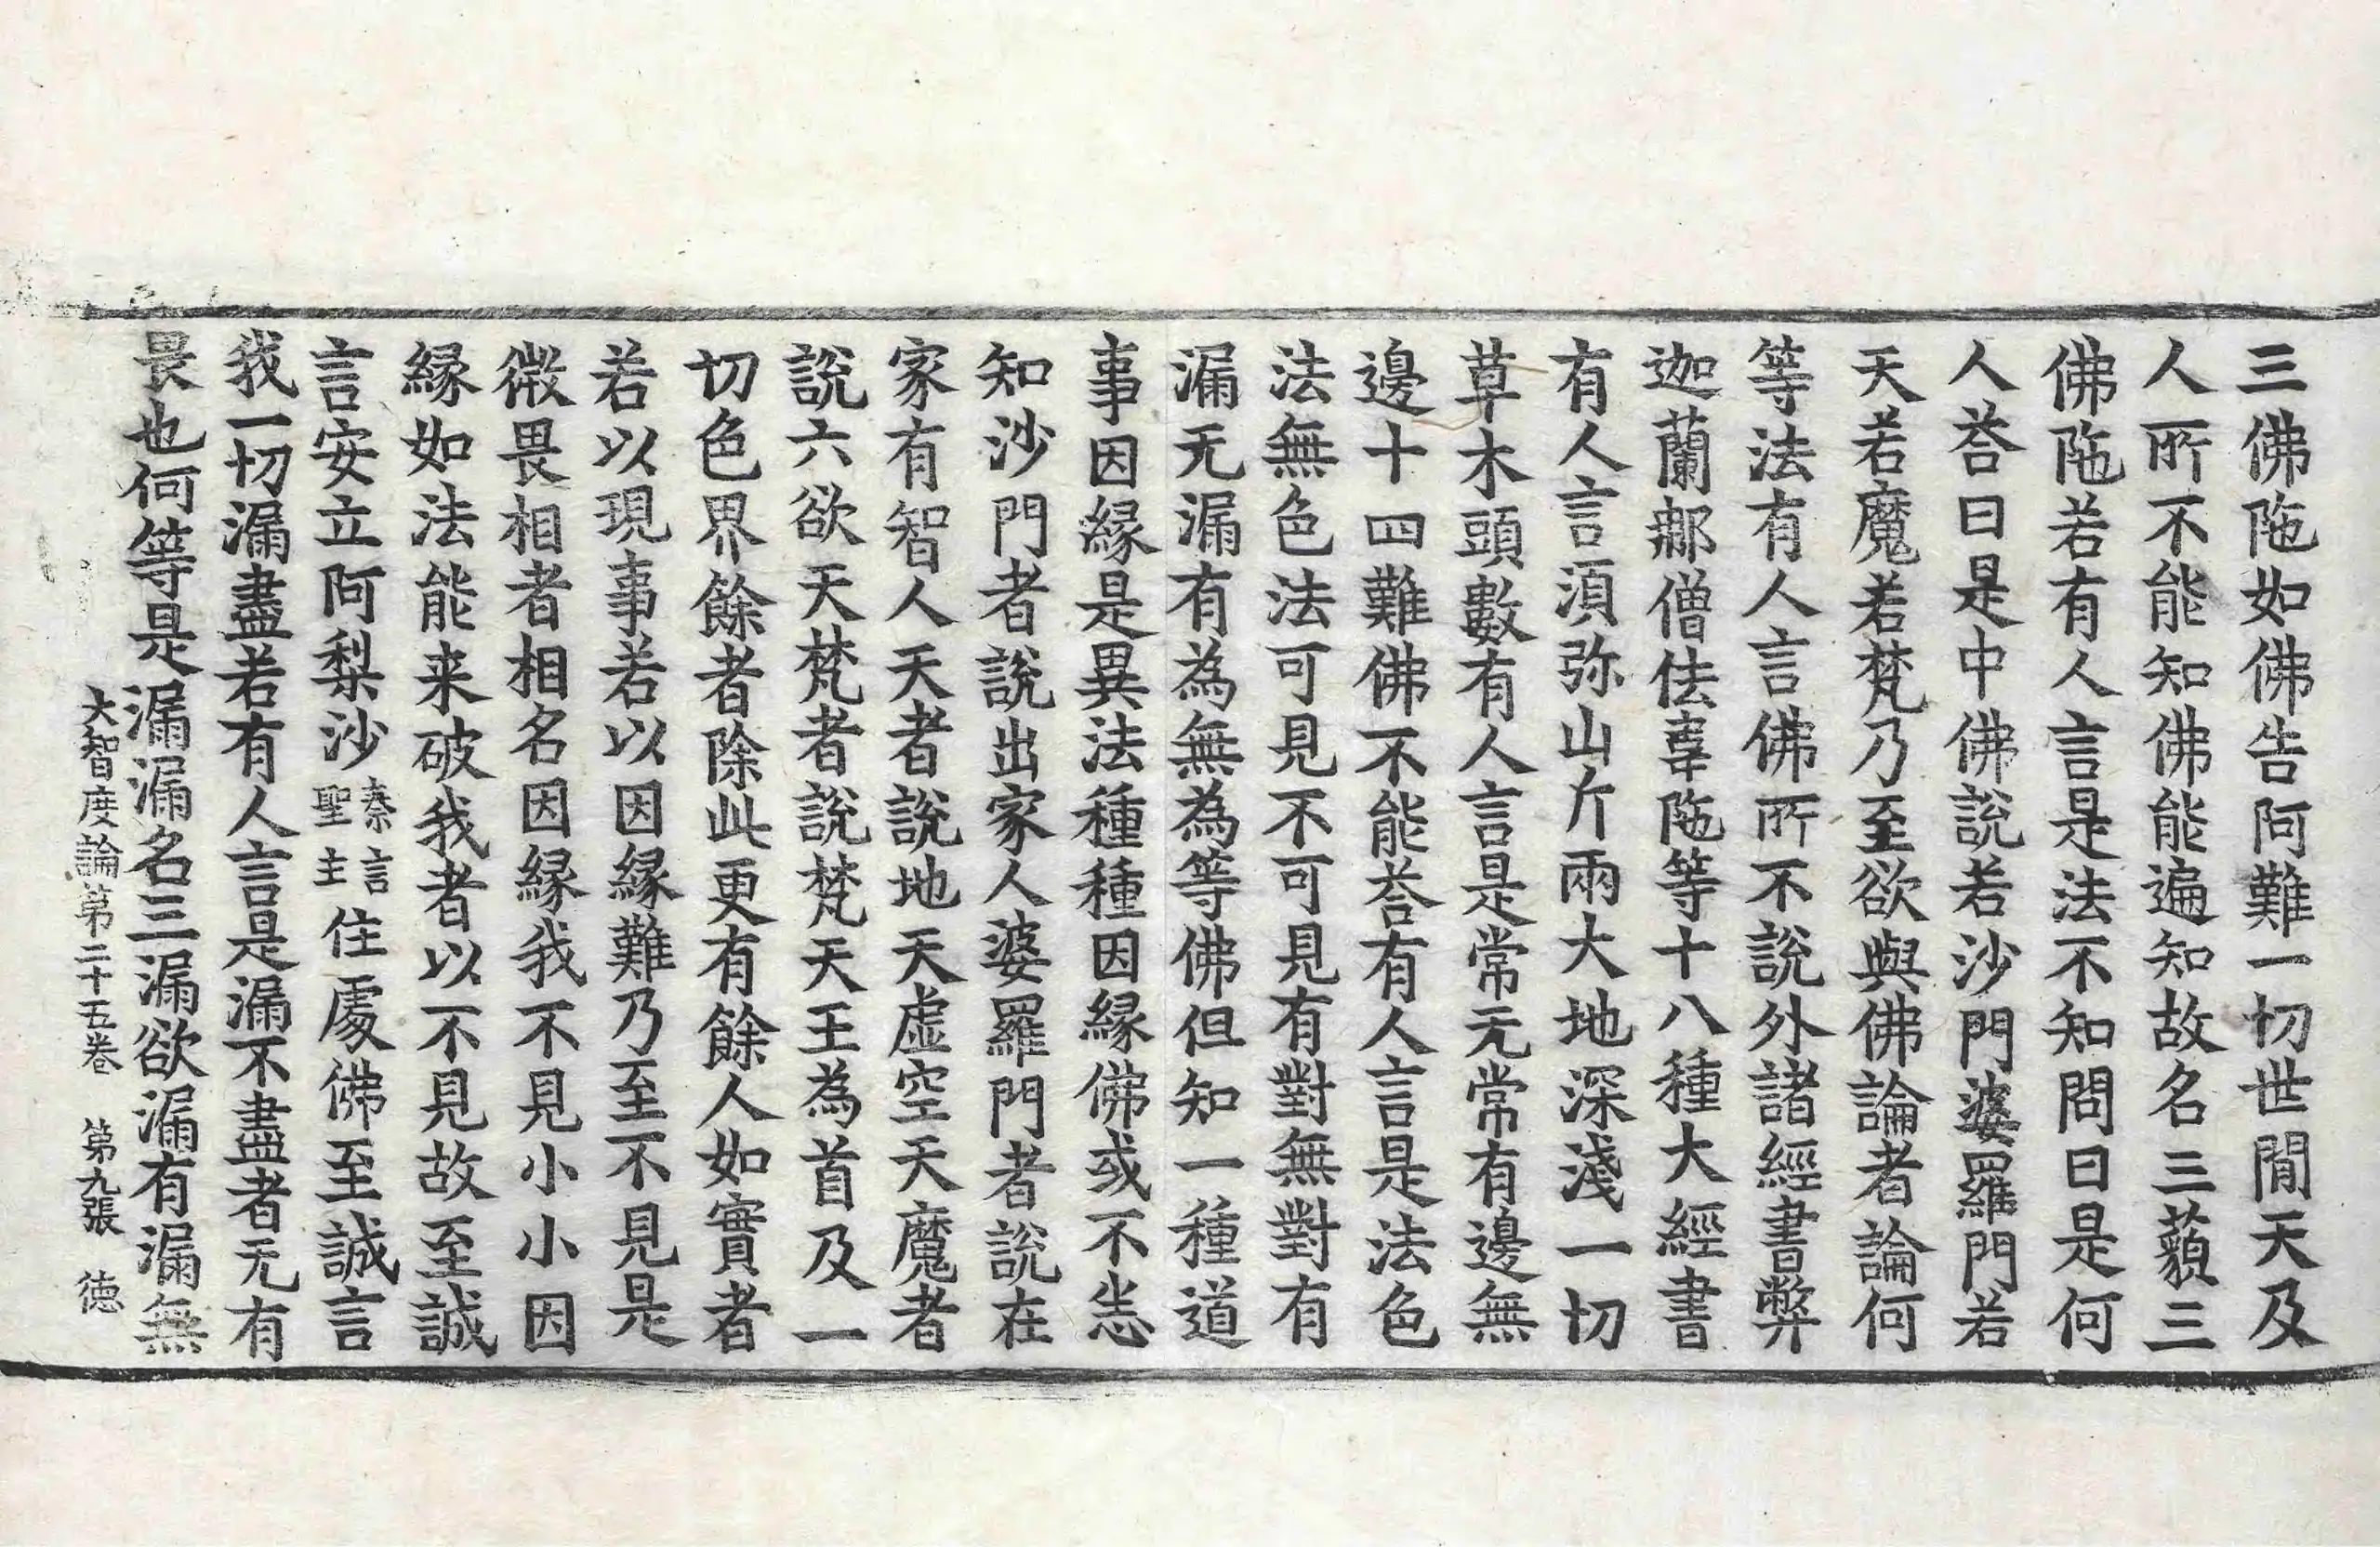 三佛陁如佛告阿難一切世閒天及
人所不能知佛能遍知故名三藐三
佛陁若有人言是法不知問曰是何
人荅曰是中佛說若沙門婆羅門若
天若魔若梵乃至欲與佛論者論何
等法有人言佛所不說外諸經書弊
迦蘭郍僧佉韋陁等十八種大經書
有人言須弥山斤兩大地深淺一切
草木頭數有人言是常无常有邊無
邊十四難佛不能荅有人言是法色
法無色法可見不可見有對無對有
漏无漏有為無為等佛但知一種道
事因緣是異法種種因緣佛或不悉
知沙門者說出家人婆羅門者說在
家有智人天者說地天虛空天魔者
說六欲天梵者說梵天王為首及一
切色界餘者除此更有餘人如實者
若以現事若以因緣難乃至不見是
微畏相者相名因緣我不見小小因
緣如法能来破我者以不見故至誠
言安立阿梨沙秦言聖主住處佛至誠言
我一切漏盡若有人言是漏不盡者无有
畏也何等是漏漏名三漏欲漏有漏無
大智度論第二十五卷　第九張　德